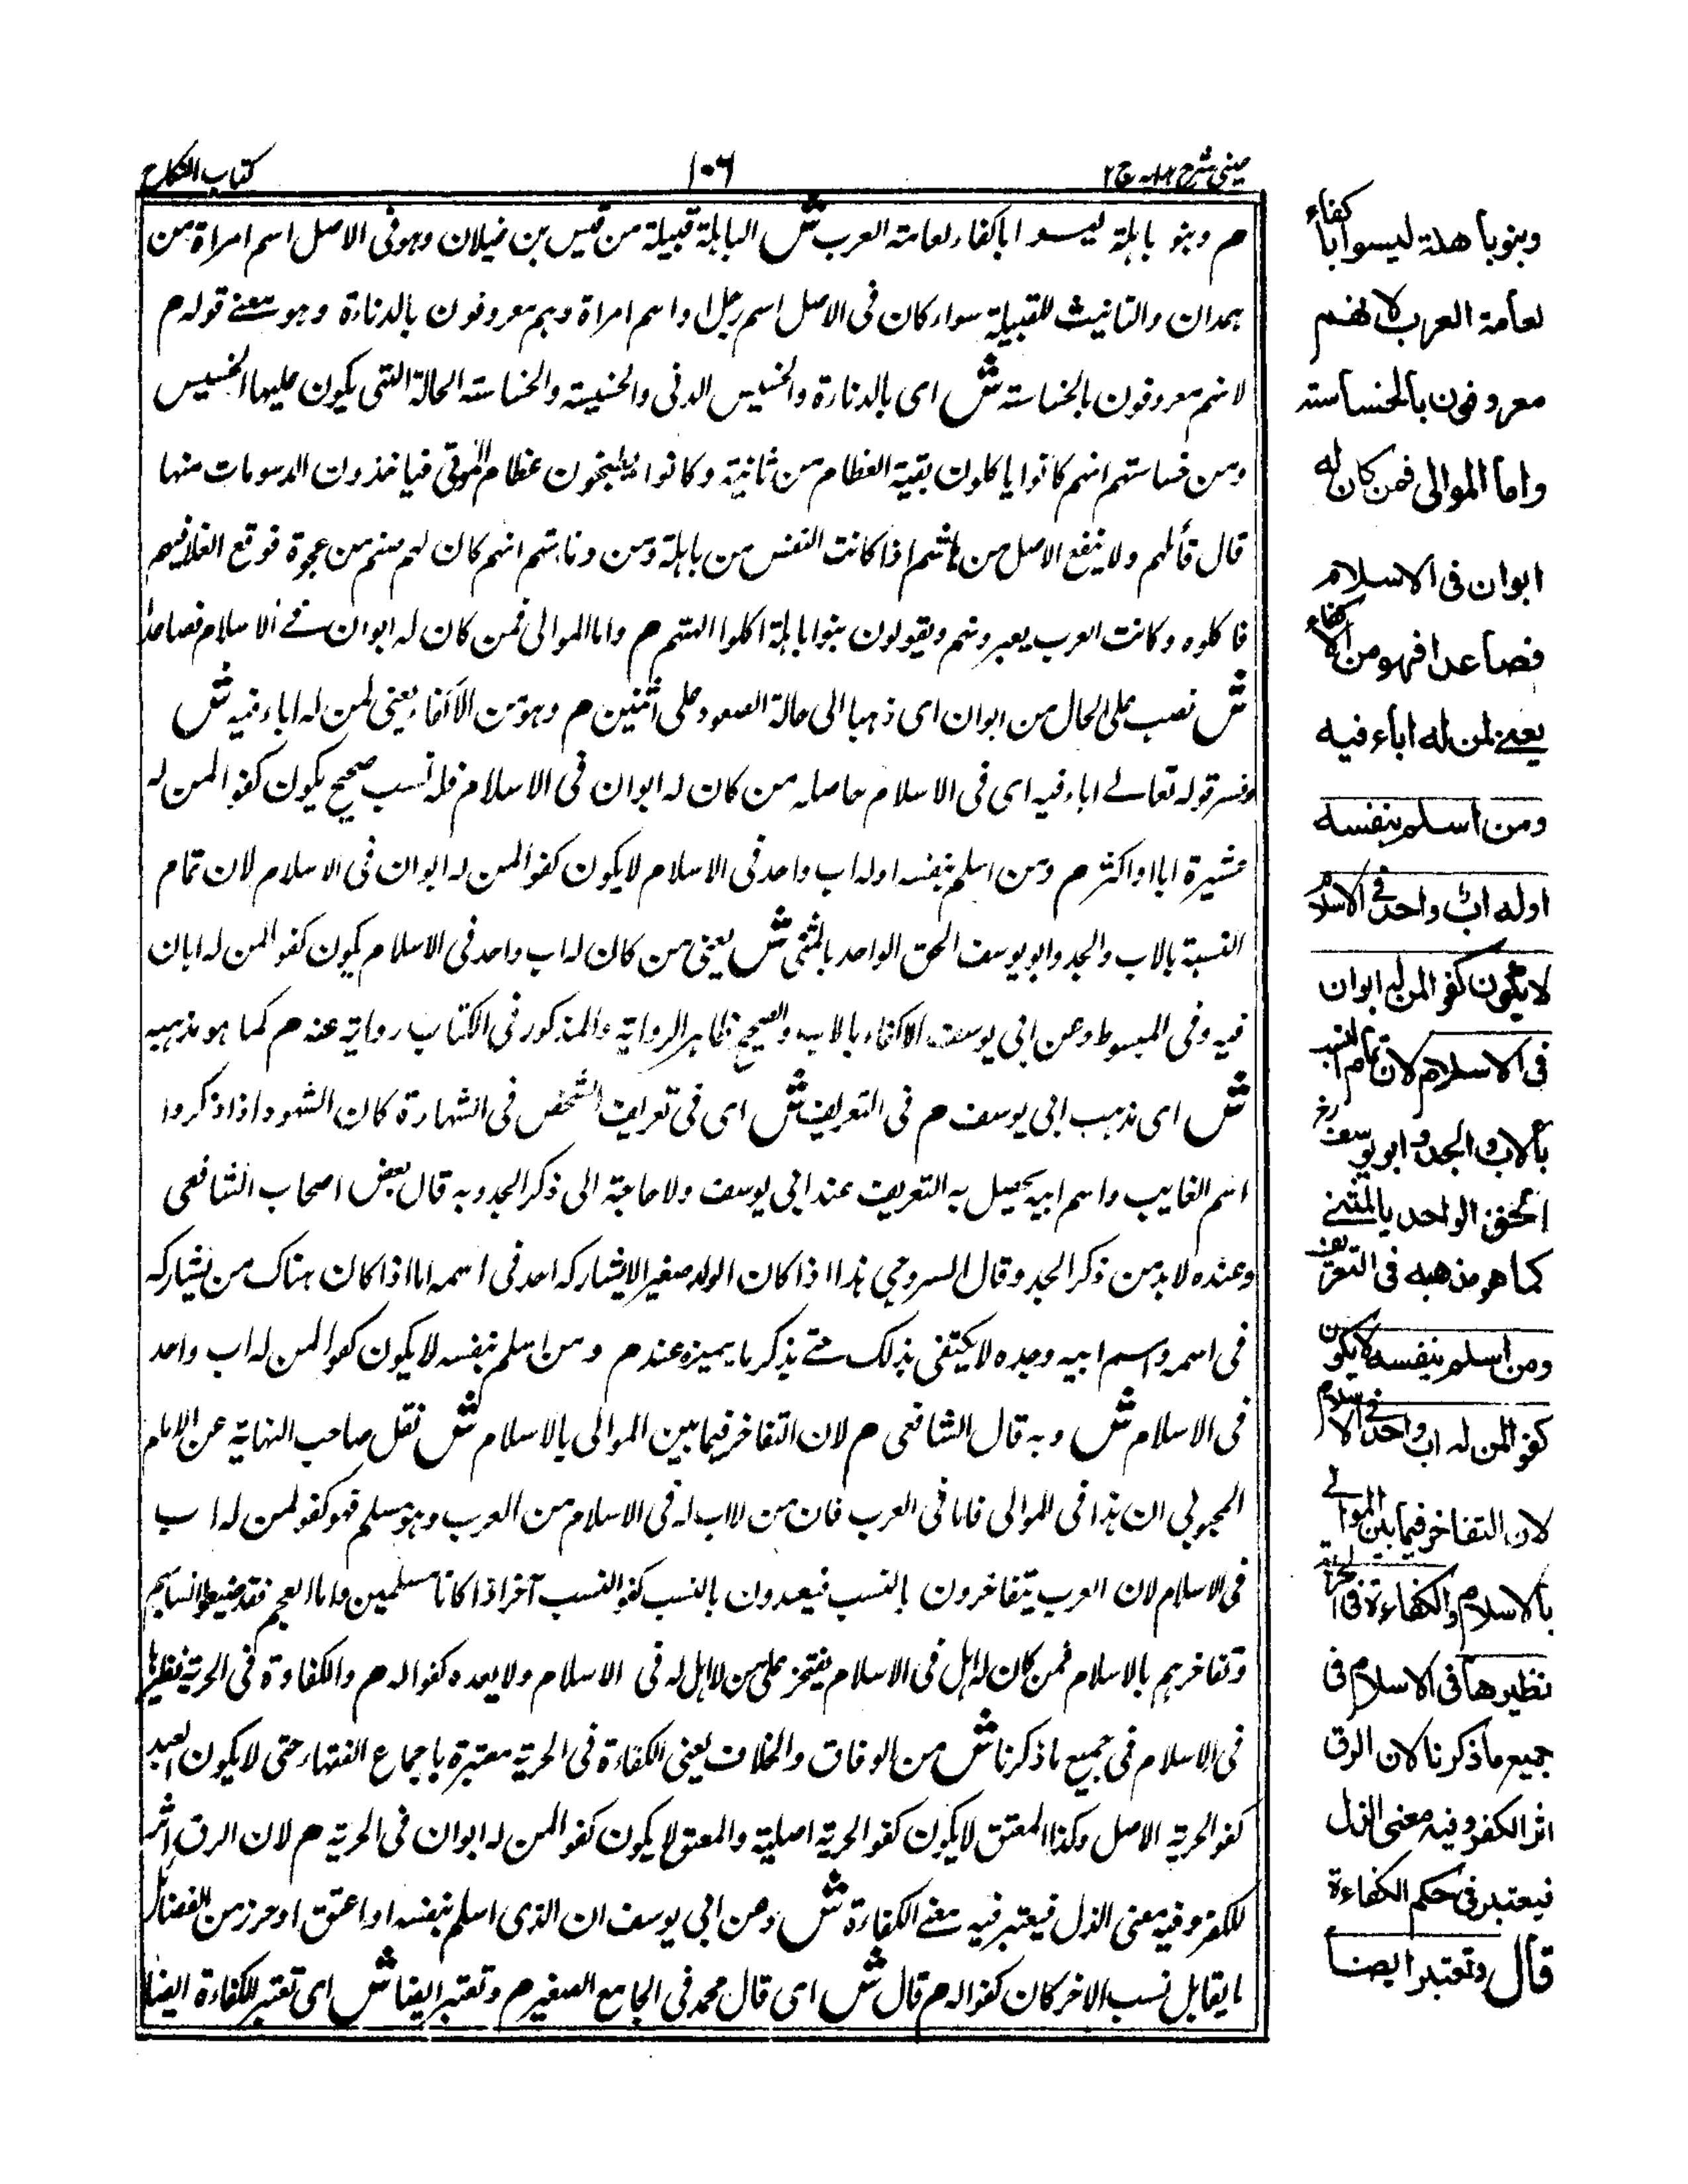 عينى شرح هدايه ج ٢
١٠٦
كتاب النكاح
م وبنو باهلة ليسوا باكفاء لعامة العرب ش الباهلة قبيلة من قيس بن غيلان وهو فى الاصل اسم امراة من
همدان والتانيث للقبيلة سواء كان فى الاصل اسم رجل او اسم امراة وهم معروفون بالدناءة وهو معنے قوله م
لانهم معروفون بالخساسة ش اى بالدناءة والخسيس الدنى والخسيسة والخساسة الحالة التى يكون عليها الخسيس
ومن خساستهم انهم كانوا ياكلون بقية العظام من ثانية وكانوا يطبخون عظام الموتى فياخذون الدسومات منها
قال قائلهم ولا ينفع الاصل من هاشم اذا كانت النفس من باهلة ومن دناءتهم انهم كان لهم صنم من عجوة فوقع الغلا فيهم
فاكلوه وكانت العرب يعيرونهم ويقولون بنوا باهلة اكلوا الهتهم م واما الموالى فمن كان له ابوان فے الاسلام فصاعدا
ش نصب على الحال من ابوان اى ذهبا الى حالة الصعود على اثنين م وهو من الاكفاء يعنى لمن له اباء فيه ش
وفسر قوله تعالے اباء فيه اى فى الاسلام حاصله من كان له ابوان فى الاسلام فله نسب صحيح يكون كفوا لمن له
عشيرة ابا او اكثر م ومن اسلم بنفسه او له اب واحد فى الاسلام لا يكون كفوا لمن له ابوان فى الاسلام لان تمام
النسبة بالاب والجد وابو يوسف الحق الواحد بالمثنى ش يعنى من كان له اب واحد فى الاسلام يكون كفوا لمن له ابان
فيه وفى المبسوط وعن ابى يوسف الاكفاء بالاب والصحيح ظاهر الرواية والمذكور فى الكتاب رواية عنه م كما هو مذهبه
ش اى مذهب ابى يوسف م فى التعريف ش اى فى تعريف الشخص فى الشهادة كان الشهود اذا ذكروا
اسم الغايب واسم ابيه يحصل به التعريف عند ابى يوسف ولا حاجة الى ذكر الجد وبه قال بعض اصحاب الشافعى
وعنده لا بد من ذكر الجد وقال السروجى هذا اذا كان الولد صغيرا لا يشاركه احد فى اسمه اما اذا كان هناك من يشاركه
فى اسمه واسم ابيه وجده لا يكتفى بذلك حتے يذكر ما يميزه عندهم ومن اسلم بنفسه لا يكون كفوا لمن له اب واحد
فى الاسلام ش وبه قال الشافعى م لان التفاخر فيما بين الموالى بالاسلام ش نقل صاحب النهاية عن الامام
المحبوبى ان هذا فى الموالى فاما فى العرب فان من لا اب له فى الاسلام من العرب وهو مسلم فهو كفو لمن له اب
فى الاسلام لان العرب يتفاخرون بالنسب فيعدون بالنسب كفوا لنسب آخر اذا كانا مسلمين واما العجم فقد ضيعوا انسابهم
وتفاخرهم بالاسلام فمن كان له اهل فى الاسلام يفتخر على من لا اهل له فى الاسلام ولا يعده كفوا له م والكفاءة فى الحرية نظيرها
فى الاسلام فى جميع ما ذكرنا ش من الوفاق والخلاف يعنى الكفاءة فى الحرية معتبرة باجماع الفقهاء حتى لا يكون العبد
كفوا لحرية الاصل وكذا المعتق لا يكون كفوا لحرية اصلية والمعتق لا يكون كفوا لمن له ابوان فى الحرية م لان الرق اثر
للكفر وفيه معنى الذل فيعتبر فيه معنے الكفاءة ش وعن ابى يوسف ان الذى اسلم بنفسه او اعتق او حرز من الفضائل
ما يقابل نسب الاخر كان كفوا له م قال ش اى قال محمد فى الجامع الصغير م وتعتبر ايضا ش اى تعتبر الكفاءة ايضا
وبنو باهلة ليسوا باكفاء
لعامة العرب لانهم
معروفون بالخساسة
واما الموالى فمن كان له
ابوان فى الاسلام
فصاعدا فهو من الاكفاء
يعنے لمن له اباء فيه
ومن اسلم بنفسه
او له اب واحد فى الاسلام
لا يكون كفوا لمن له ابوان
فى الاسلام لان تمام النسب
بالاب والجد وابو يوسف رح
الحق الواحد بالمثنے
كما هو مذهبه فى التعريف
ومن اسلم بنفسه لا يكون
كفوا لمن له اب واحد فى الاسلام
لان التفاخر فيما بين الموالے
بالاسلام والكفاءة فى الحرية
نظيرها فى الاسلام فى
جميع ما ذكرنا لان الرق
اثر الكفر وفيه معنى الذل
فيعتبر فى حكم الكفاءة
قال وتعتبر ايضا